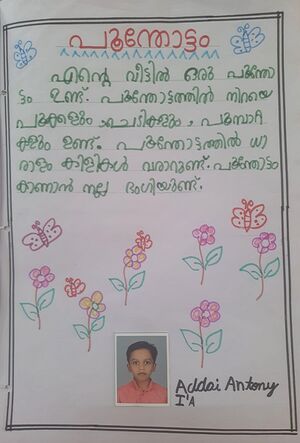 പൂന്തോട്ടം
എന്റെ വീട്ടിൽ ഒരു പൂന്തോ
ട്ടം ഉണ്ട്. പൂന്തോട്ടത്തിൽ നിറയെ
പൂക്കളും, ചെടികളും, പൂമ്പാറ്റ
കളും ഉണ്ട്. പൂന്തോട്ടത്തിൽ ധാ
രാളം കിളികൾ വരാറുണ്ട്. പൂന്തോട്ടം
കാണാൻ നല്ല ഭംഗിയുണ്ട്.
Addai Antony
I'A